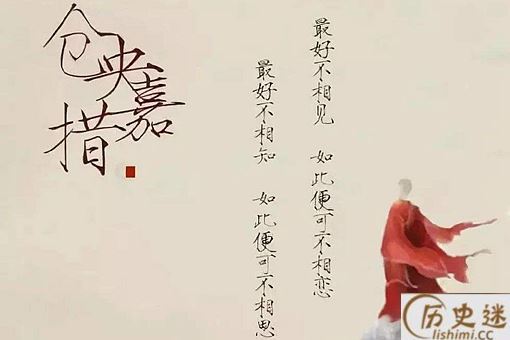 仓央嘉措
最好不相见 如此便可不相恋
最好不相知 如此便可不相思
历史迷
lishimi.CC